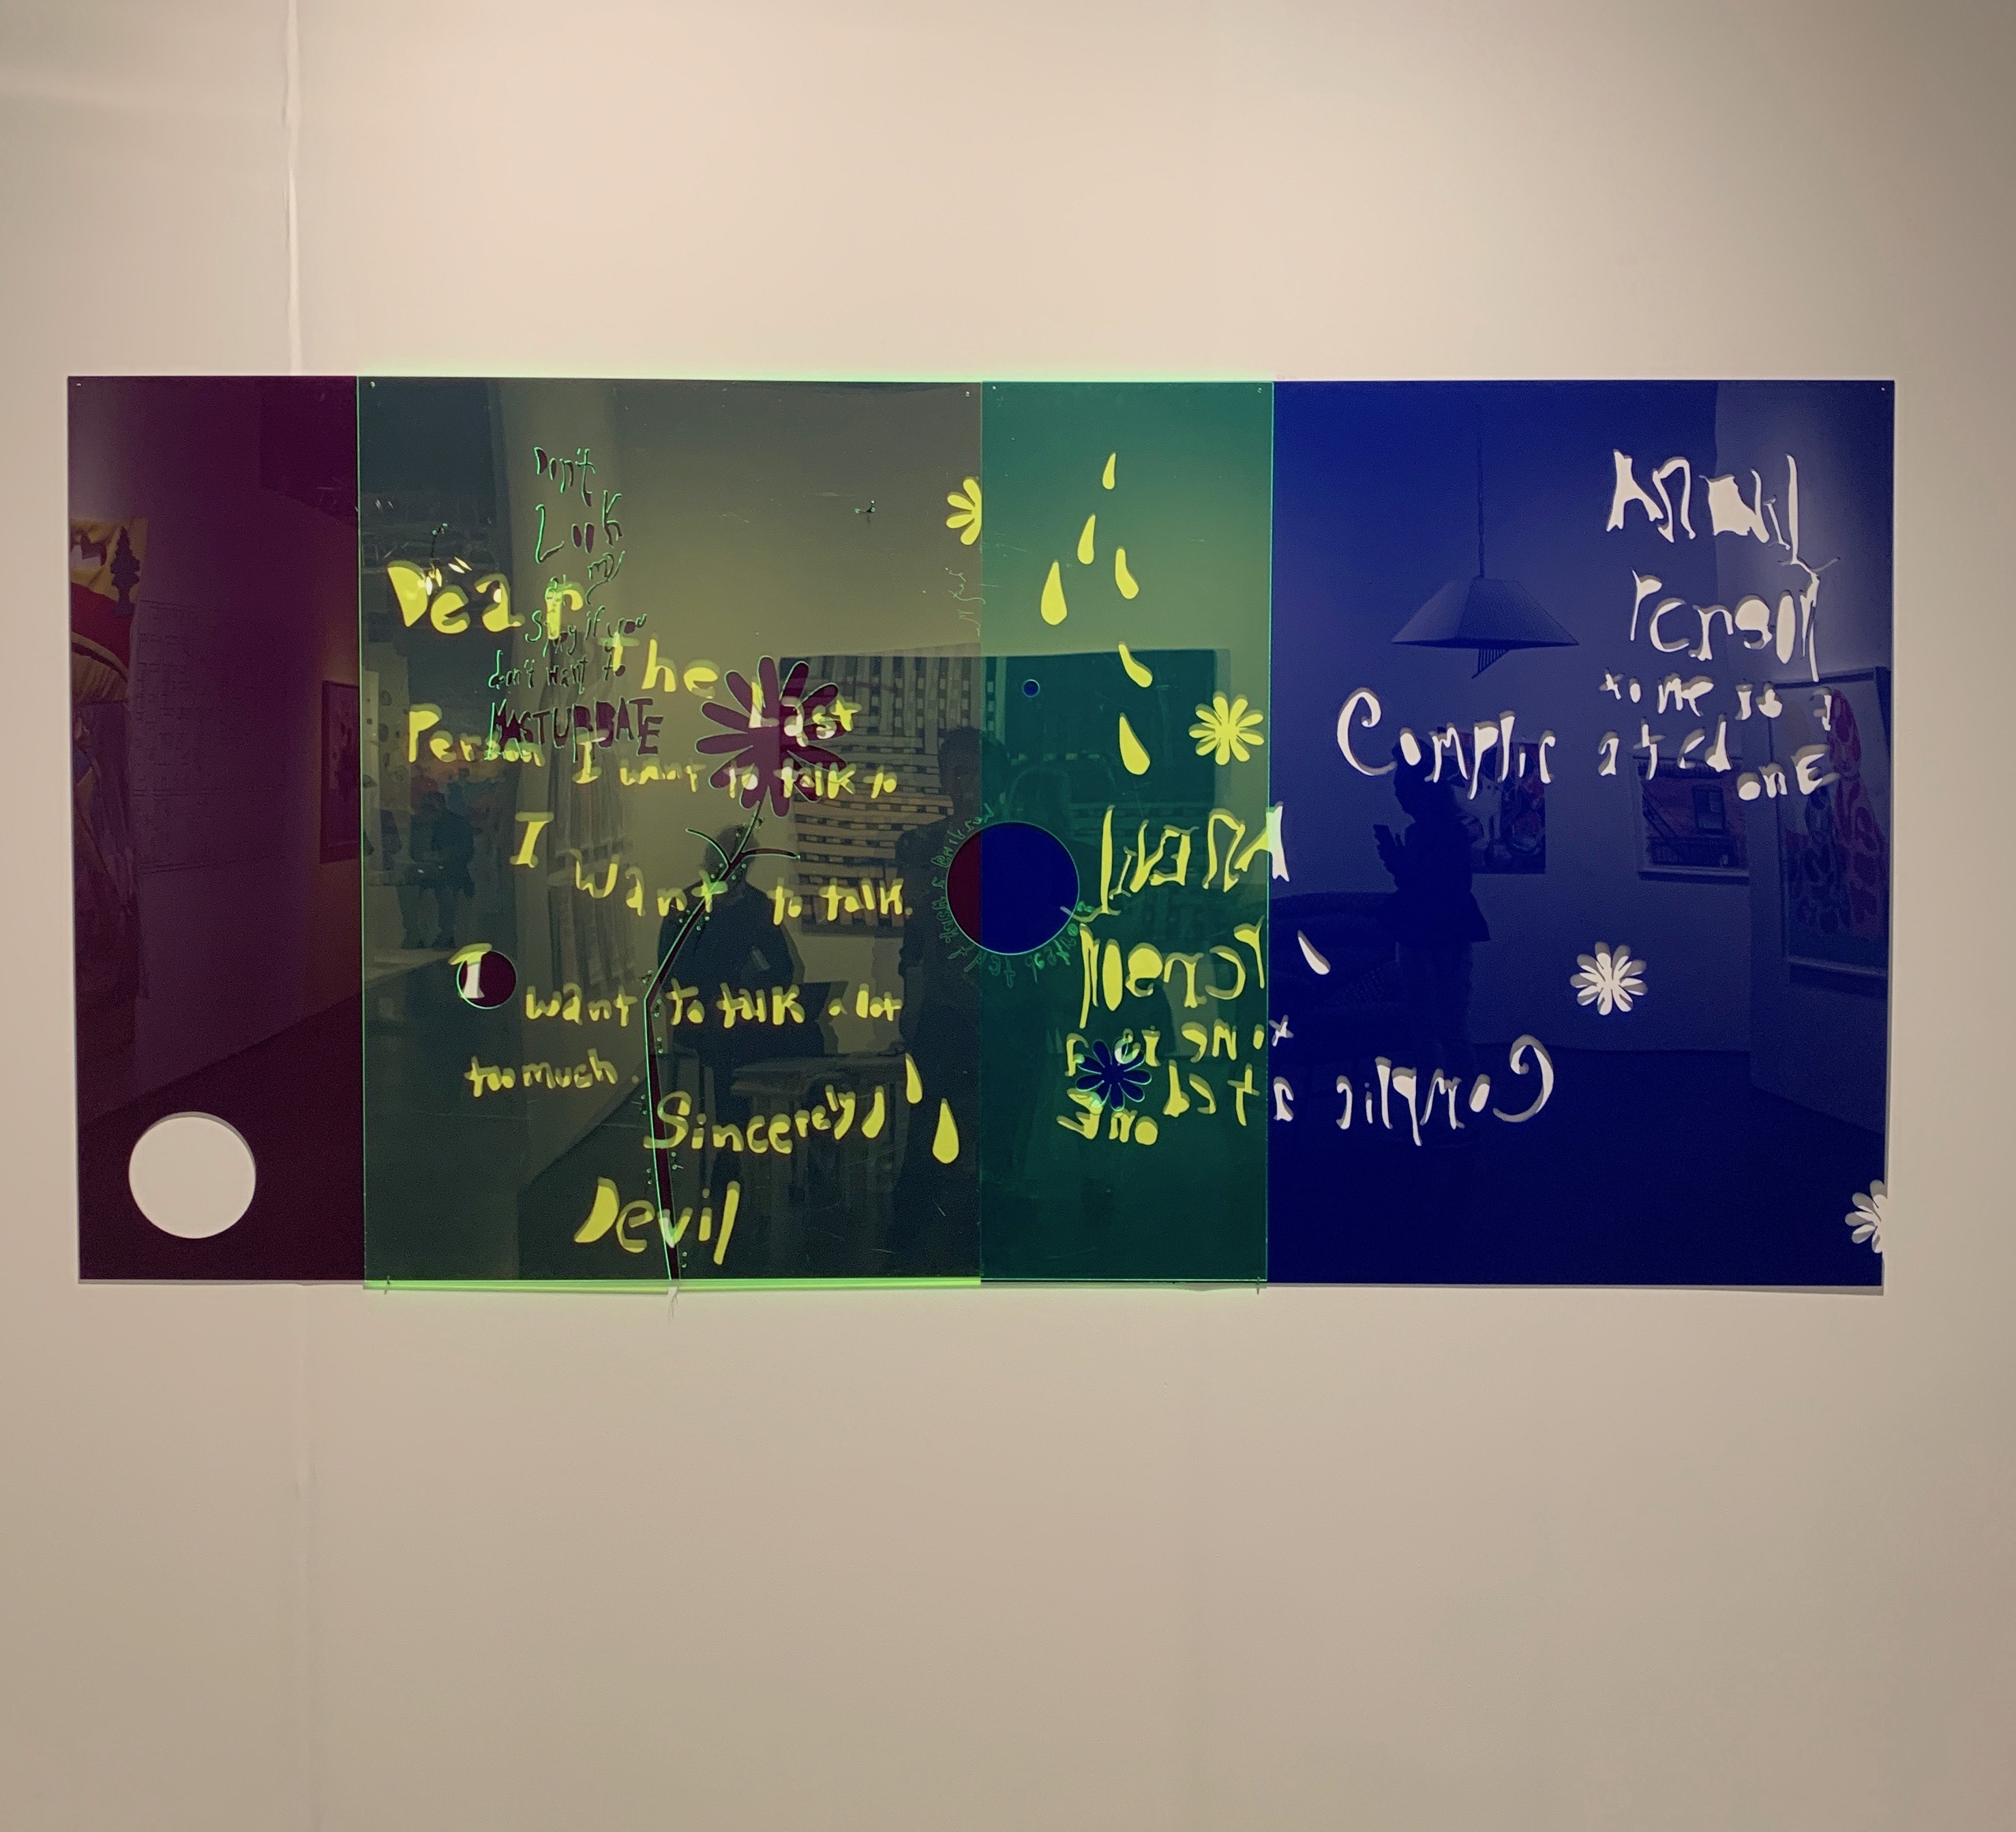 Don't
Look
at my
Story if you
don't want to
MASTURBATE
Dear
the
Last
Person I want to talk to
I
want to talk.
I want to talk a lot
too much.
Sincerely
Devil
Person
to me is a
Complic ated
onE
Person
to me is a
Complic ated
onE